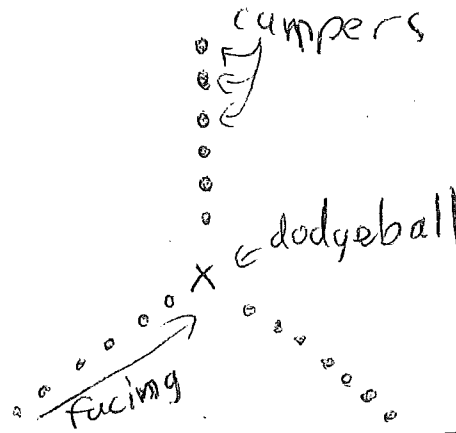 campers
dodgeball
X
facing